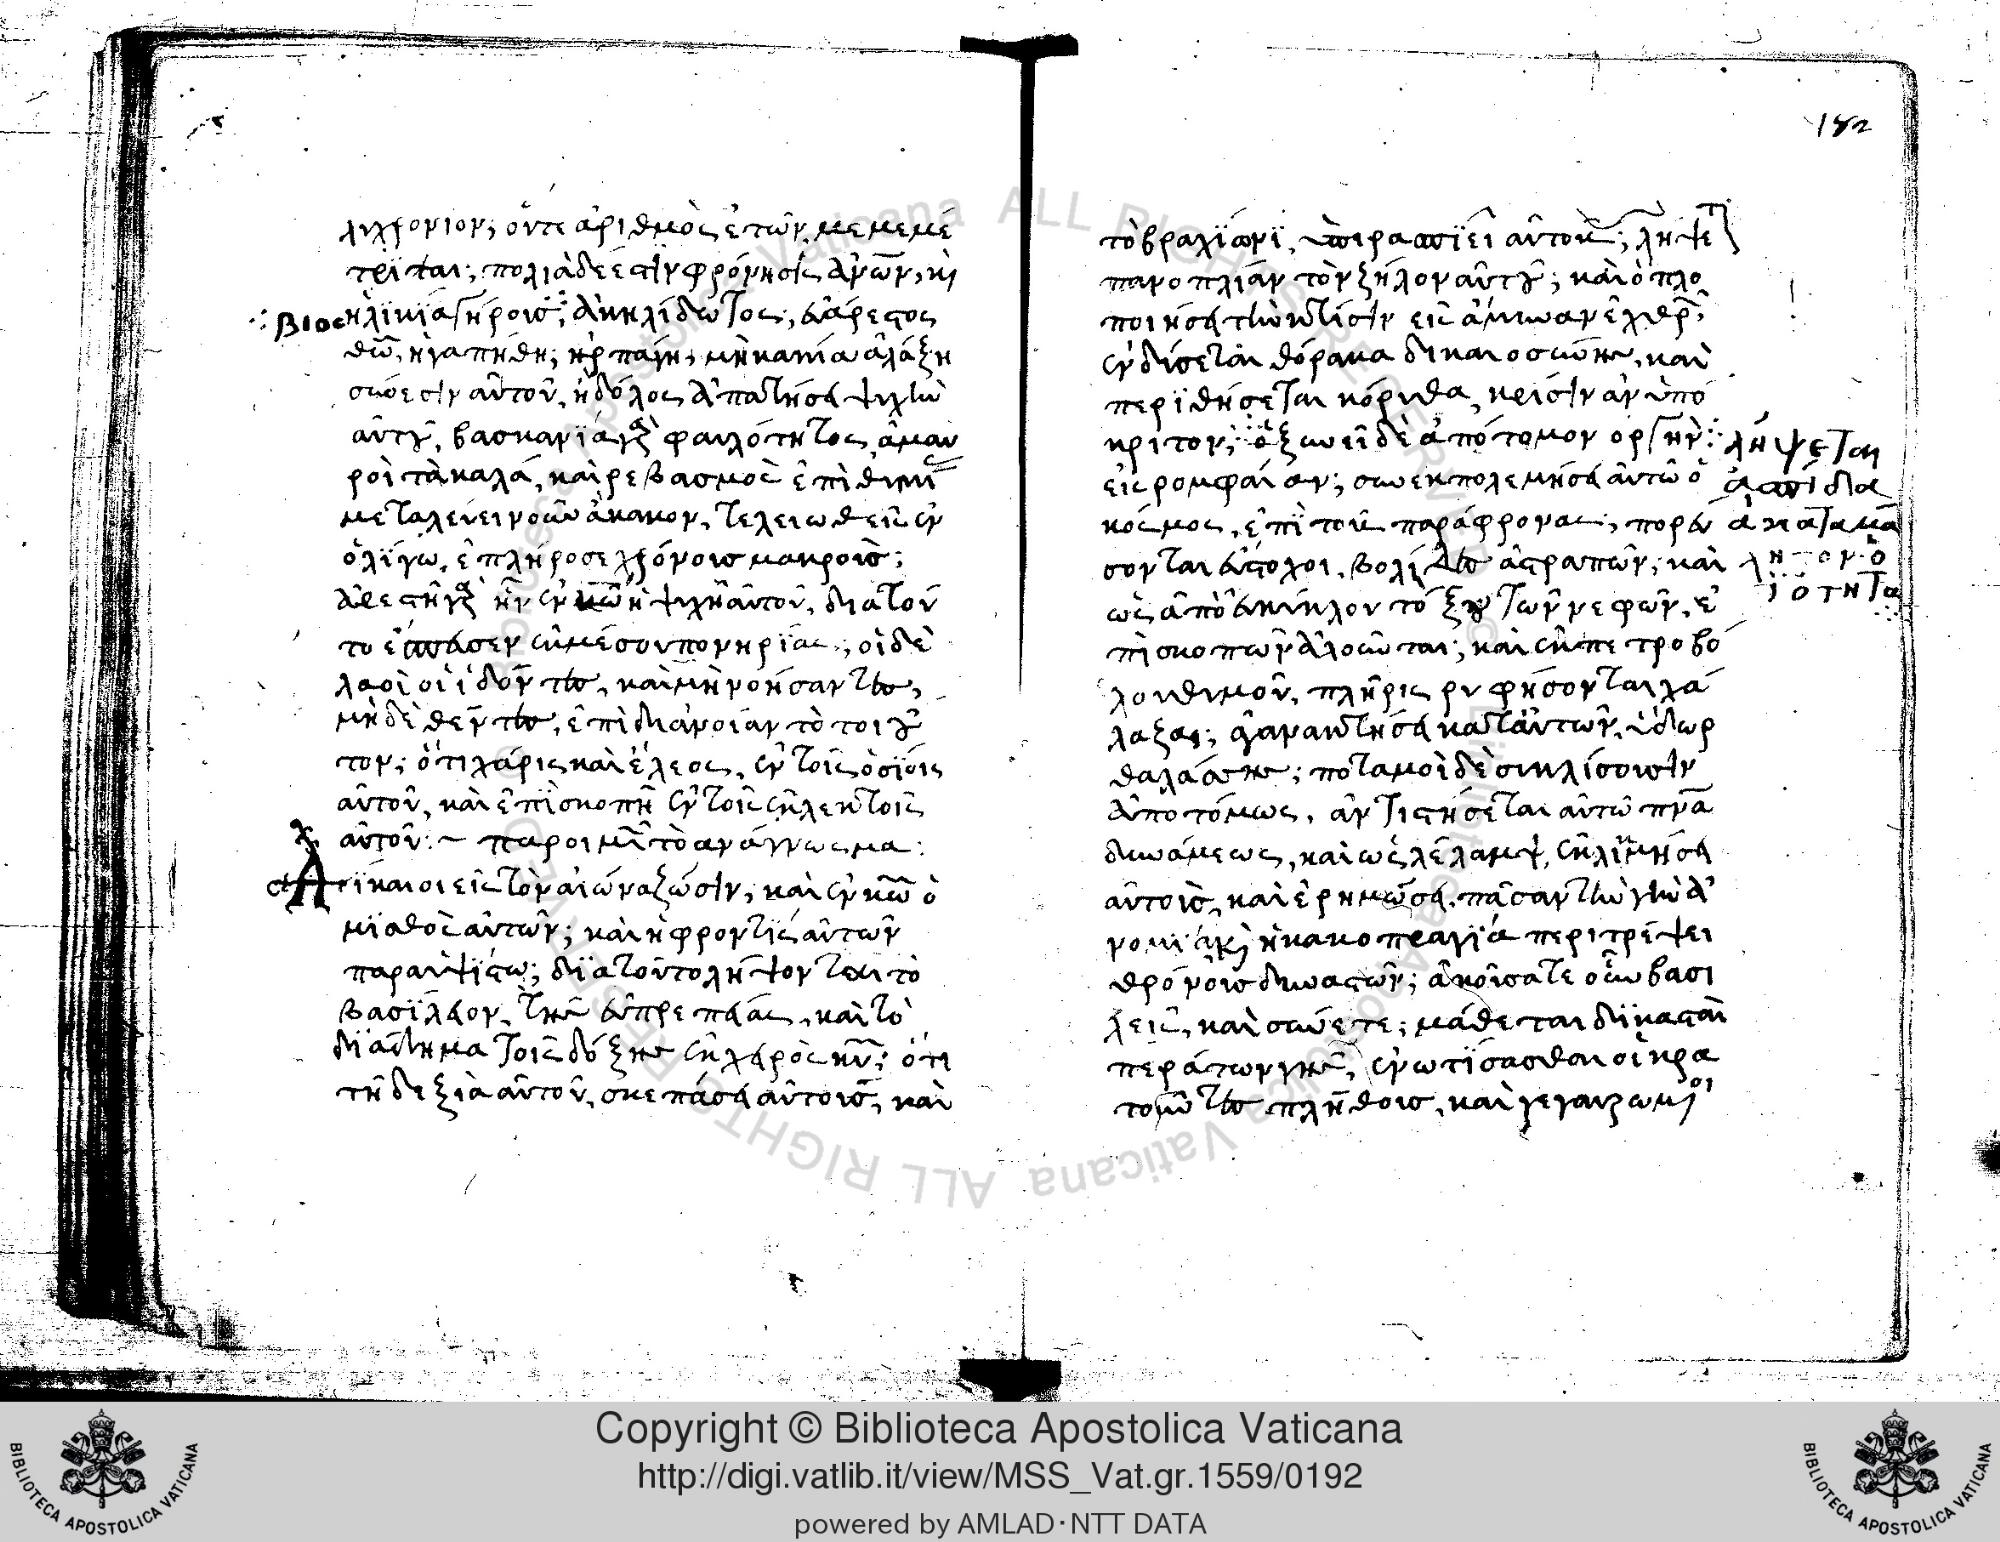 λυχρονιον; οὔτε ἀριθμὸς ἐτῶν μεμεμέ
τρϊται; πολιὰ δέ ἐστὶν φρόνησὶς ἀν̅ων, κ̀
βιος ἡλϊκΐα γήροισ, ἀκηλίδωτος, εὐάρεστος
θω̅, ἠγαπήθη; ἡρπάγη, μὴ κακία ἀλάξη
σύνεσιν αὐτοῦ, ἢ δόλος ἀπατήσει ψυχὴν
αὐτοῦ, βασκανΐα γὰρ φαυλότητος ἀμαυ
ροῖ τὰ καλά, καὶ ρεβασμὸς ἐπιθυμί
μεταλεύει νοῦν ἄκακον, τελειωθεὶς ἐν
ὀλίγω, ἐπλήροσε χρόνοισ μακροὶς;
ἀρεστὴ γὰρ ἦν ἐν κω̅ ἡ ψυχὴ αὐτοῦ, διατοῦ
το ἔσπευσεν ἐκ μέσου πονηρΐας; οἱ δὲ
λαοὶ οἱ ἰδόντες, καὶ μὴ νοήσαντες,
μηδὲ θέντες, ἐπὶ διανοίαν τὸ τοιοῦ
τον; ὅτι χάρις καὶ ἔλεος, ἐν τοῖς ὁσΐοις
αὐτοῦ, καὶ ἐπϊσκοπὴ ἐν τοῖς ἐκλεκτοῖς
αὐτοῦ: ~ παροιμι̅ τὸ ἀνάγνωσμα:
Δΐκαιοι εἰς τὸν αἰώνα ζώσιν, καὶ ἐν κω̅ ὁ
μϊσθὸς αὐτῶν; καὶ ἡ φροντὶς αὐτῶν
παρα ὑψΐστω; διατοῦτο λήψονται τὸ
βασΐλειον, τῆς εὐπρεπείας, καὶ τὸ
διάδημα τοῖς δόξης ἐκ χειρὸς κ̅υ; ὅτι
τῆ δεξιὰ αὐτοῦ, σκεπάσει αὐτοὺς, καὶ
182
τὸ βραχΐονϊ, ὑπερασπϊεῖ αὐτοὺς; λήψετ
πανοπλίαν τὸν ζήλον αὐτοῦ; καὶ ὁπλο
ποιήσει τὴν κτίσιν εἰς ἄμυναν ἐχθρ̅
ἐνδύσεται θόρακα δικαιοσύνην, καὶ
περϊθήσεται κόρυθα, κρίσιν ἀνυπό
κριτον; ὀξυνεῖ δὲ ἀπότομον ὀργὴν
εἰς ρομφαίαν; συνεκπολεμήσει αὐτῶ ὁ
κόσμος, ἐπὶ τοὺς παράφρονας; πορεύ
σονται εὔστολοι, βολίδες ἀστραπῶν; καὶ
ὡς ἀπὸ εὐκύκλου τόξου τῶν νεφῶν, ἐ
πὶ σκοπῶν ἀλοῦνται; καὶ ἐκ πετροβό
λου θυμοῦ, πλῆρις ρυφήσονται χά
λαζαι; ἀγανακτήσει κατ αὐτῶν, ὕδωρ
θαλάσσης; ποταμοὶ δὲ συκλίσουσιν
ἀποτόμως, ἀντιστήσεται αὐτῶ πν̅α
δυνάμεως, καὶ ὡς λέλαμψ, ἐκλϊκμήσει
αὐτοὺς, καὶ ἐρημώσει πᾶσαν τὴν γὴν ἀ
νομΐα, κ̀ ἡ κακοπραγΐα περιτρέψει
θρόνοις δυναστῶν; ἀκούσατε οὖν βασι
λεῖς, καὶ σύνετε; μάθεται δϊκασταὶ
περάτων γῆς, ἐνωτΐσασθαι οἱ κρα
τοῦντες πλήθοις, καὶ γεγαυρωμ̅οι
λήψεται
ἀσπίδα
ἀκαταμά
χητον ὁ
σϊότητα
Copyright © Biblioteca Apostolica Vaticana
http://digi.vatlib.it/view/MSS_Vat.gr.1559/0192
powered by AMLAD·NTT DATA
BIBLIOTECA APOSTOLICA VATICANA
BIBLIOTECA APOSTOLICA VATICANA